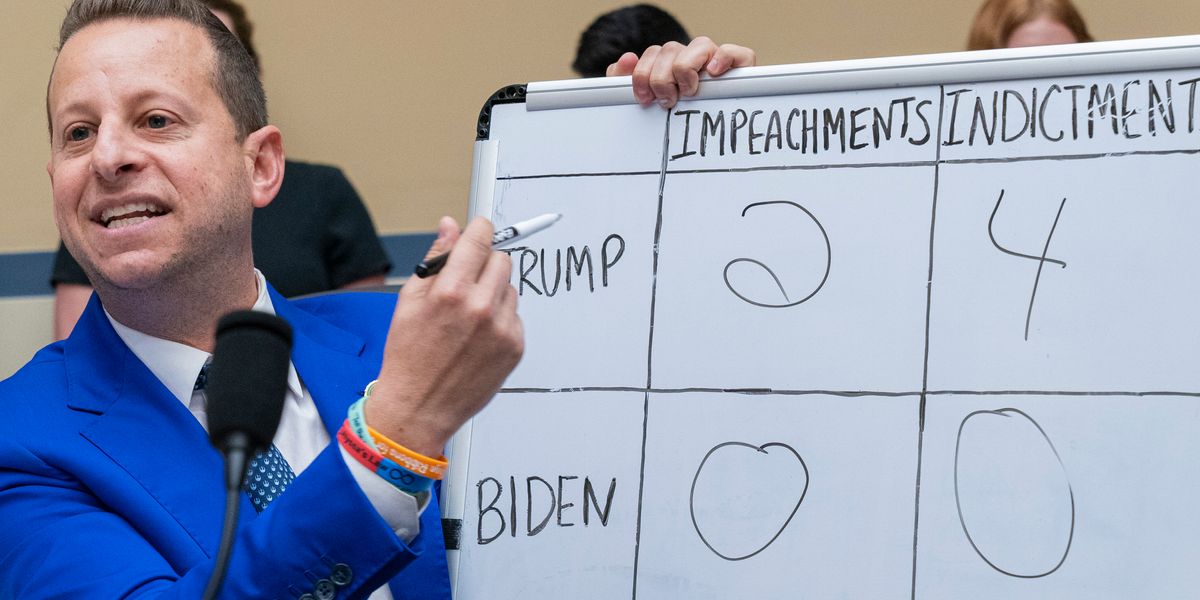 IMPEACHMENTS INDICTMENT
TRUMP 2 4
BIDEN 0 0